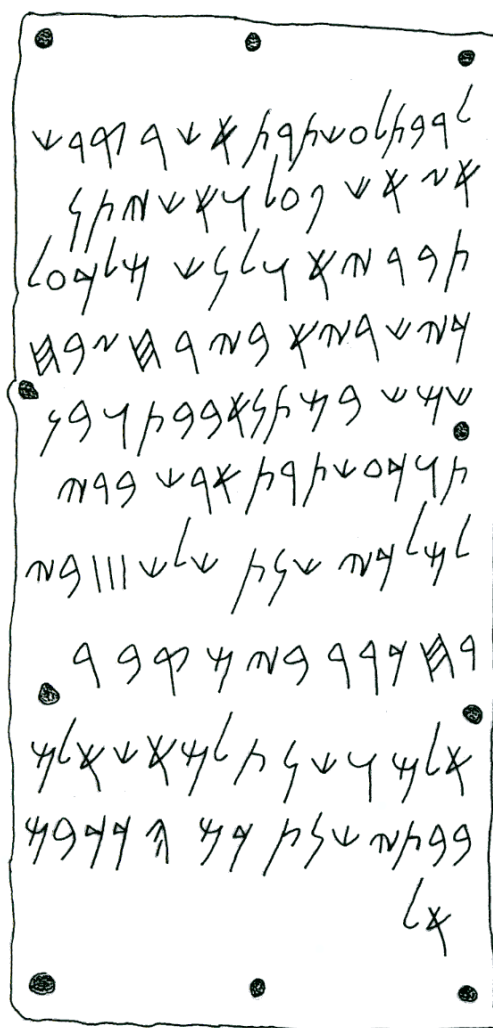 𐤋𐤓𐤁𐤕𐤋𐤏𐤔𐤕𐤓𐤕 𐤀𐤔𐤓 𐤒𐤃𐤔
𐤀𐤆 𐤀𐤔 𐤐𐤏𐤋 𐤅𐤀𐤔 𐤉𐤕𐤍
𐤕𐤁𐤓𐤉𐤀 𐤅𐤋𐤍𐤔 𐤌𐤋𐤊𐤏𐤋
𐤊𐤉𐤔𐤓𐤉𐤀 𐤁𐤉𐤓𐤇 𐤆𐤁𐤇
𐤔𐤌𐤔 𐤁𐤌𐤕𐤍𐤀𐤁𐤁𐤕 𐤅𐤁𐤍
𐤕𐤅 𐤊𐤏𐤔𐤕𐤓𐤕 𐤀𐤓𐤔 𐤁𐤃𐤉
𐤋𐤌𐤋𐤊𐤉 𐤔𐤍𐤕 𐤔𐤋𐤔 𐤖𐤖𐤖 𐤁𐤉
𐤓𐤇 𐤊𐤓𐤓 𐤁𐤉𐤌 𐤒𐤁𐤓
𐤀𐤋𐤌 𐤅𐤔𐤍𐤕 𐤋𐤌𐤀𐤔 𐤀𐤋𐤌
𐤁𐤁𐤕𐤉 𐤔𐤍𐤕 𐤊𐤌 𐤄𐤊𐤊𐤁𐤌
𐤀𐤋